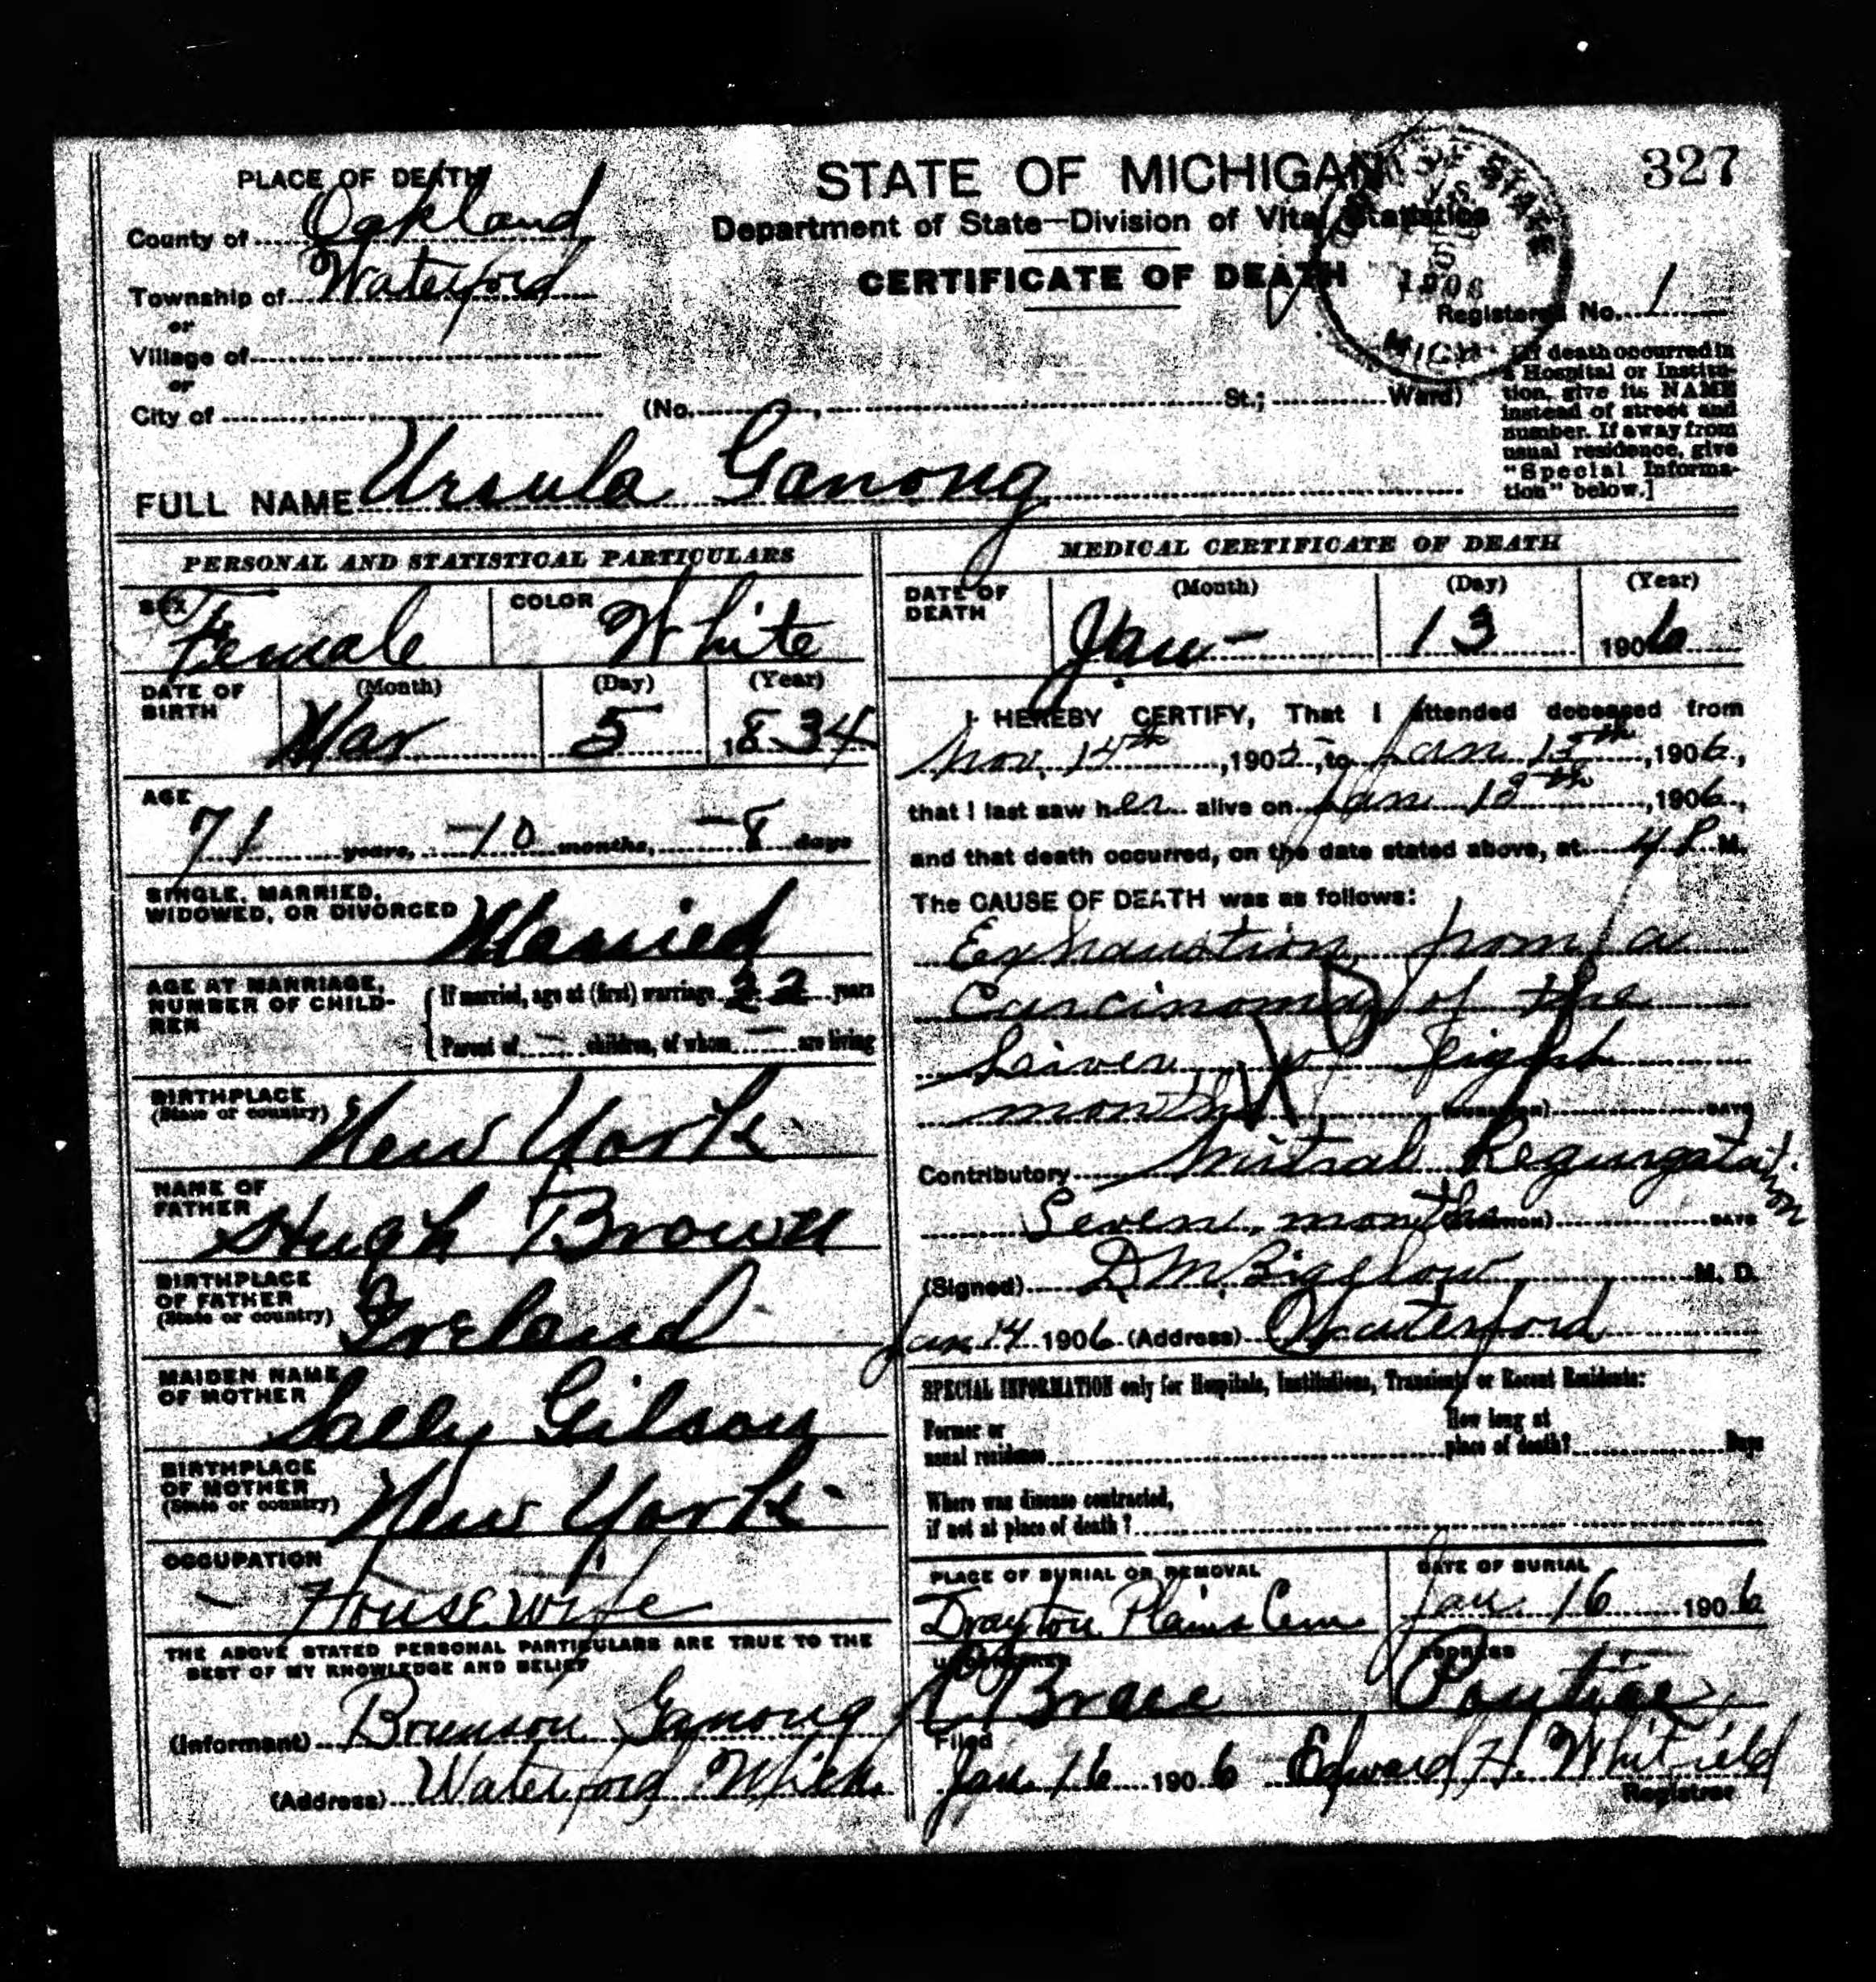 327
PLACE OF DEATH
STATE OF MICHIGAN
County of Oakland
Department of State—Division of Vital Statistics
Township of Waterford
CERTIFICATE OF DEATH
STATE
1906
MICH.
or
Registered No. 1
Village of
or
City of (No. , St.; Ward)
[If death occurred in
a Hospital or Institu-
tion, give its NAME
instead of street and
number. If away from
usual residence, give
"Special Informa-
tion" below.]
FULL NAME Ursula Ganong
PERSONAL AND STATISTICAL PARTICULARS
SEX Female COLOR White
DATE OF BIRTH (Month) Mar (Day) 5 (Year) 1834
AGE
71 years, 10 months, 8 days
SINGLE, MARRIED,
WIDOWED, OR DIVORCED Married
AGE AT MARRIAGE,
NUMBER OF CHILD-
REN
If married, age at (first) marriage 22 years
Parent of — children, of whom — are living
BIRTHPLACE
(State or country) New York
NAME OF
FATHER Hugh Brown
BIRTHPLACE
OF FATHER
(State or country) Ireland
MAIDEN NAME
OF MOTHER Sally Gilson
BIRTHPLACE
OF MOTHER
(State or country) New York
OCCUPATION
Housewife
THE ABOVE STATED PERSONAL PARTICULARS ARE TRUE TO THE
BEST OF MY KNOWLEDGE AND BELIEF
(Informant) Brunson Ganong
(Address) Waterford Mich.
MEDICAL CERTIFICATE OF DEATH
DATE OF DEATH (Month) Jan (Day) 13 (Year) 1906
I HEREBY CERTIFY, That I attended deceased from
Nov. 14th, 1905, to Jan 13th, 1906,
that I last saw her alive on Jan 13th, 1906,
and that death occurred, on the date stated above, at 4 P. M.
The CAUSE OF DEATH was as follows:
Exhaustion from a
Carcinoma of the
Liver of Eight
months (DURATION) DAYS
Contributory Mitral Regurgatation
Seven months (DURATION) DAYS
(Signed) D M Bigelow M. D.
Jan 14 1906 (Address) Waterford
SPECIAL INFORMATION only for Hospitals, Institutions, Transients or Recent Residents:
Former or
usual residence
How long at
place of death? Days
Where was disease contracted,
if not at place of death?
PLACE OF BURIAL OR REMOVAL
Drayton Plains Cem
DATE OF BURIAL
Jan. 16 1906
UNDERTAKER
Brace
ADDRESS
Pontiac
Filed
Jan. 16 1906 Edward H. Whitfield
Registrar